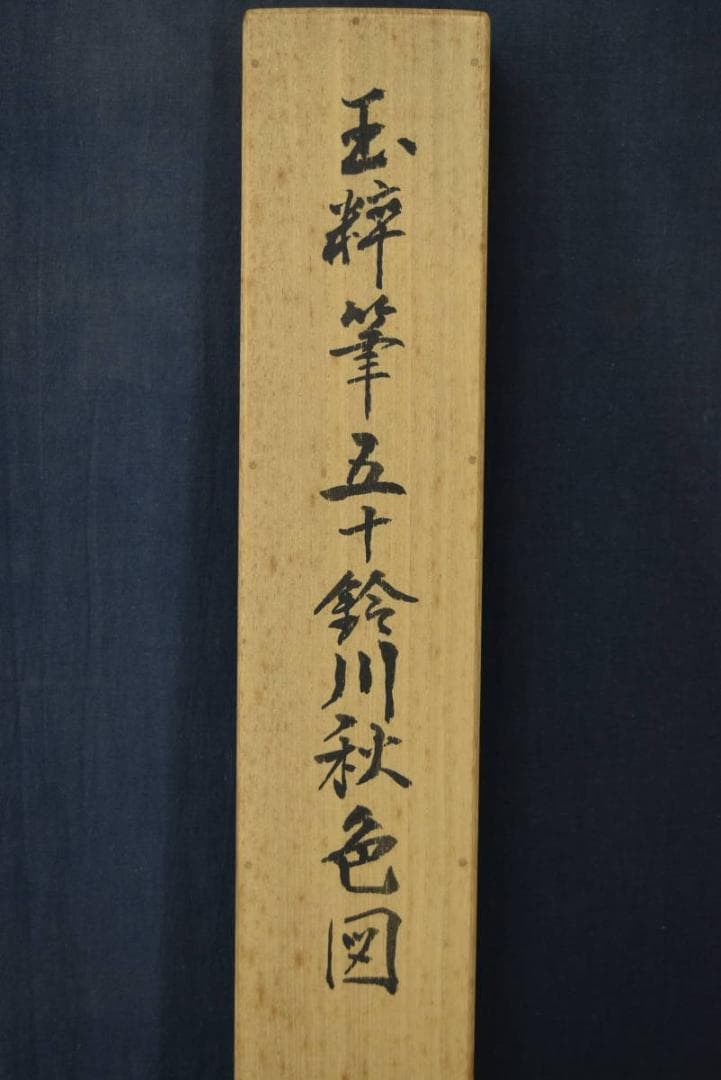 玉粹筆五十鈴川秋色図